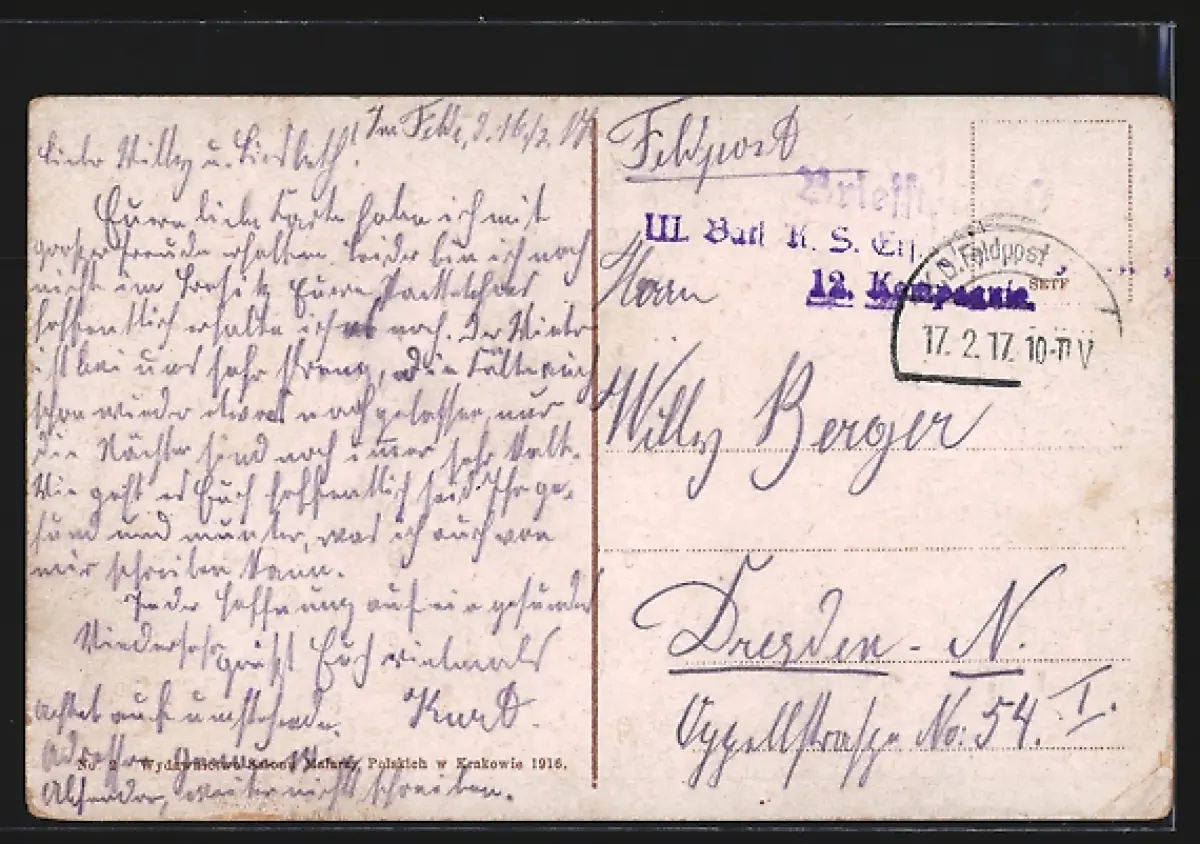 Im Felde, d. 16/2. 17.
Liebe Willy u. Liesbeth!
Eure liebe Karte habe ich mit
großer Freude erhalten. Leider bin ich noch
nicht im Besitz Eures Paketchens
hoffentlich erhalte ich es noch. Der Winter
ist bei uns sehr streng, die Kälte
schon wieder etwas nachgelassen nur
die Nächte sind noch immer sehr kalt.
Wie geht es Euch hoffentlich seid Ihr ge-
sund und munter, was ich auch von
mir schreiben kann.
In der Hoffnung auf ein gesundes
Wiedersehn grüßt Euch vielmals
Kurt.
achtet auf umstehende
Adresse genau
Absender, weiter nichts schreiben.
No 2 Wydawnictwo Salonu Malarzy Polskich w Krakowie 1916.
Feldpost
III. Batl. K. S. Ers.
12. Kompagnie.
K. D. Feldpost
17. 2. 17. 10-11 V
Herrn
Willy Berger
Dresden - N.
Oppellstrasse No: 54. I.